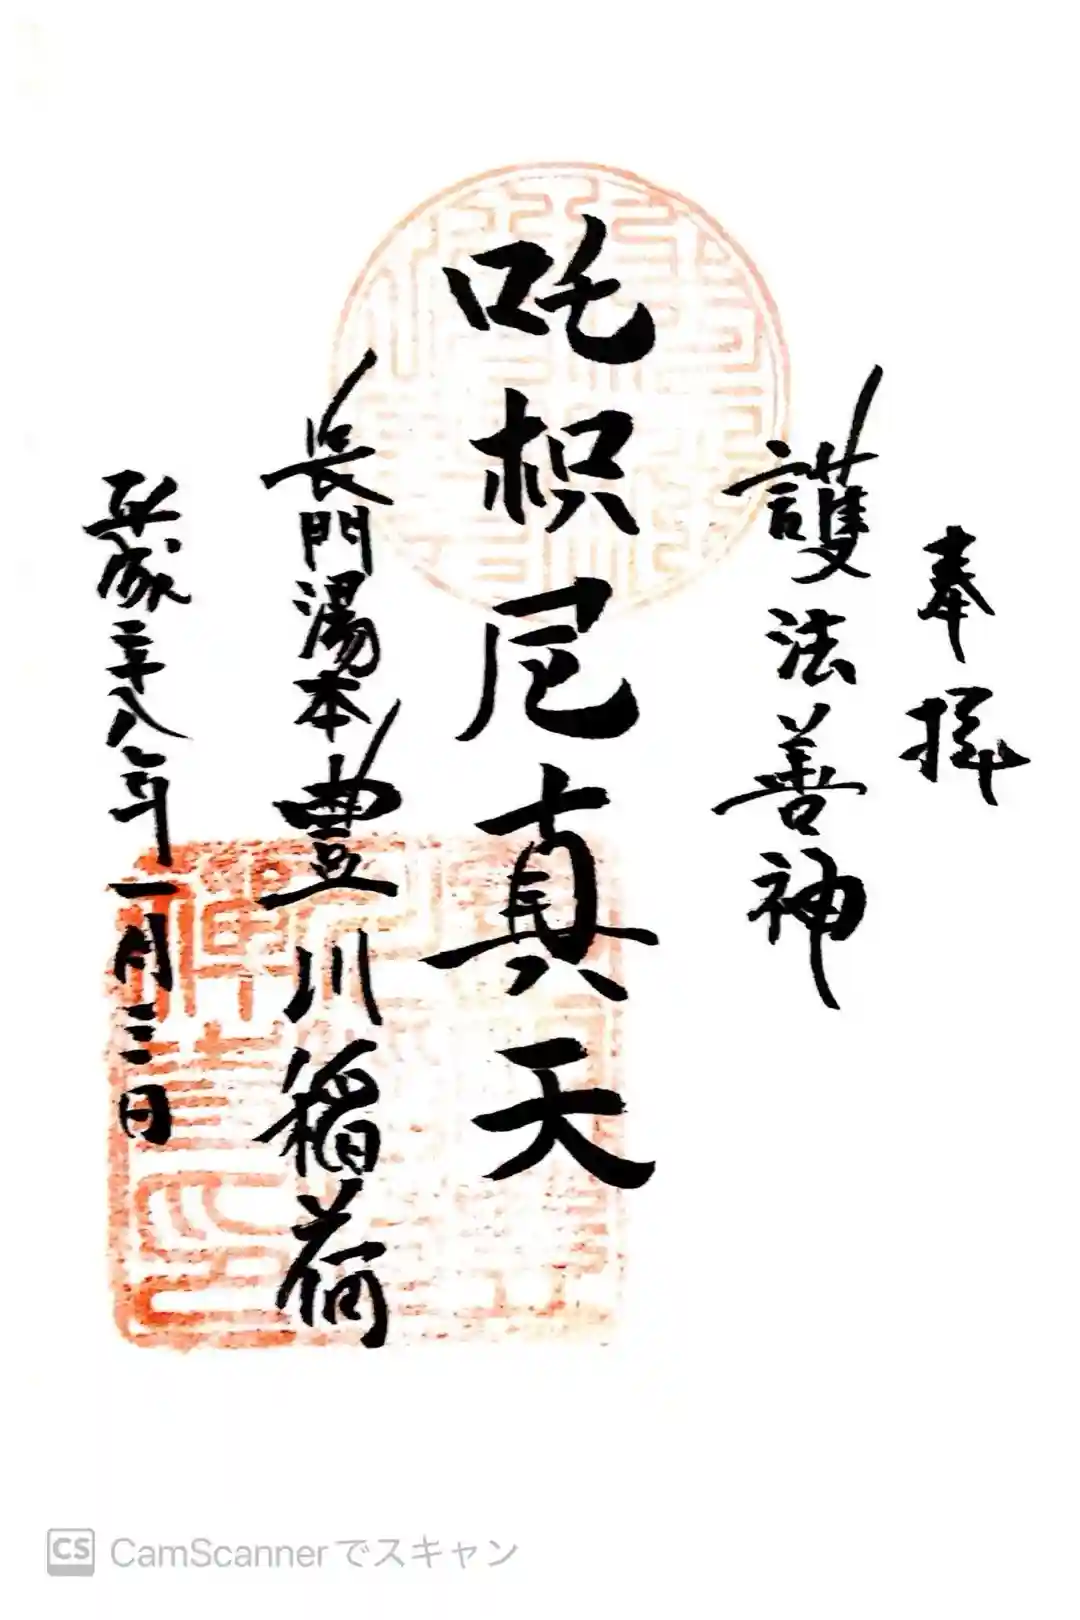 奉拝
護法善神
吒枳尼真天
長門湯本豊川稲荷
平成二十八年一月三日
CS CamScannerでスキャン